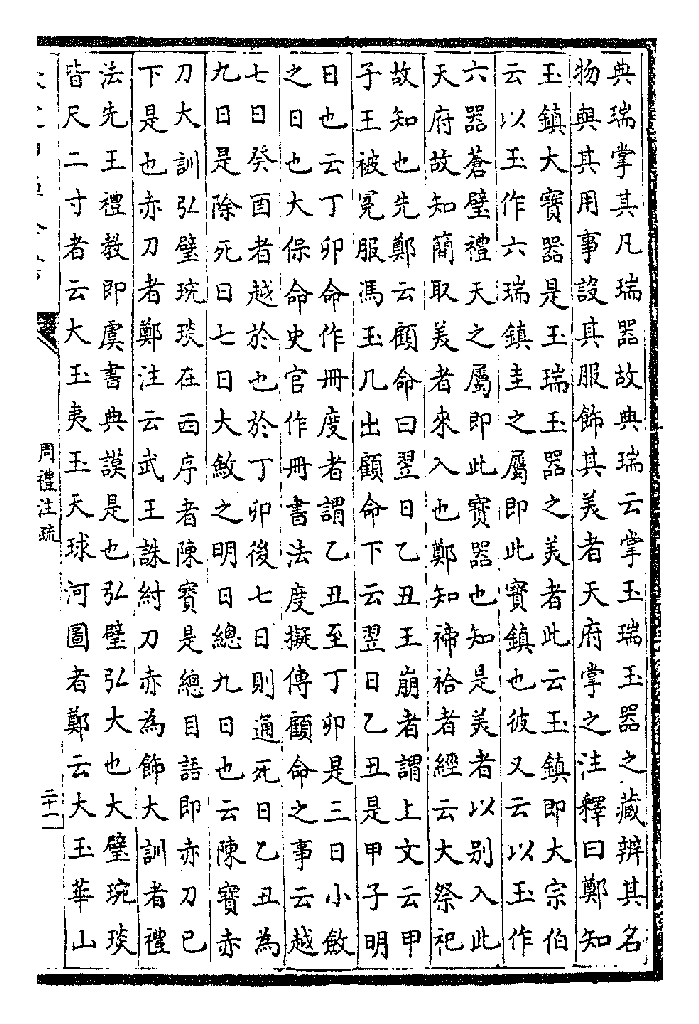 典瑞掌其凡瑞器故典瑞云掌玉瑞玉器之藏辨其名
物與其用事設其服飾其美者天府掌之注釋曰鄭知
玉鎮大寶器是玉瑞玉器之美者此云玉鎮即大宗伯
云以玉作六瑞鎮圭之屬即此寶鎮也彼又云以玉作
六器蒼璧禮天之屬即此寶器也知是美者以别入此
天府故知簡取美者來入也鄭知禘祫者經云大祭祀
故知也先鄭云顧命曰翌日乙丑王崩者謂上文云甲
子王被冕服馮玉几出顧命下云翌日乙丑是甲子明
日也云丁卯命作冊度者謂乙丑至丁卯是三日小斂
之日也大保命史官作冊書法度擬傳顧命之事云越
七日癸酉者越於也於丁卯後七日則通死日乙丑為
九日是除死日七日大斂之明日總九日也云陳寶赤
刀大訓弘璧琬琰在西序者陳寶是總目語即赤刀已
下是也赤刀者鄭注云武王誅紂刀赤為飾大訓者禮
法先王禮教即虞書典謨是也弘璧弘大也大璧琬琰
皆尺二寸者云大玉夷玉天球河圖者鄭云大玉華山
周禮注疏
二十一